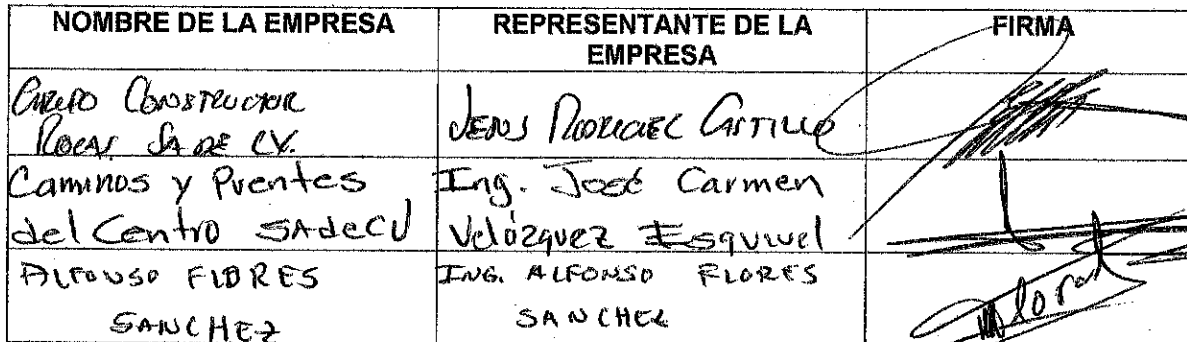 NOMBRE DE LA EMPRESA
REPRESENTANTE DE LA
EMPRESA
FIRMA
GRUPO CONSTRUCTOR
ROCAS SA DE CV.
JESUS RODRIGUEZ CASTILLO
Caminos y Puentes
del Centro SAdeCV
Ing. José Carmen
Velázquez Esquivel
ALFONSO FLORES
SANCHEZ
ING. ALFONSO FLORES
SANCHEZ